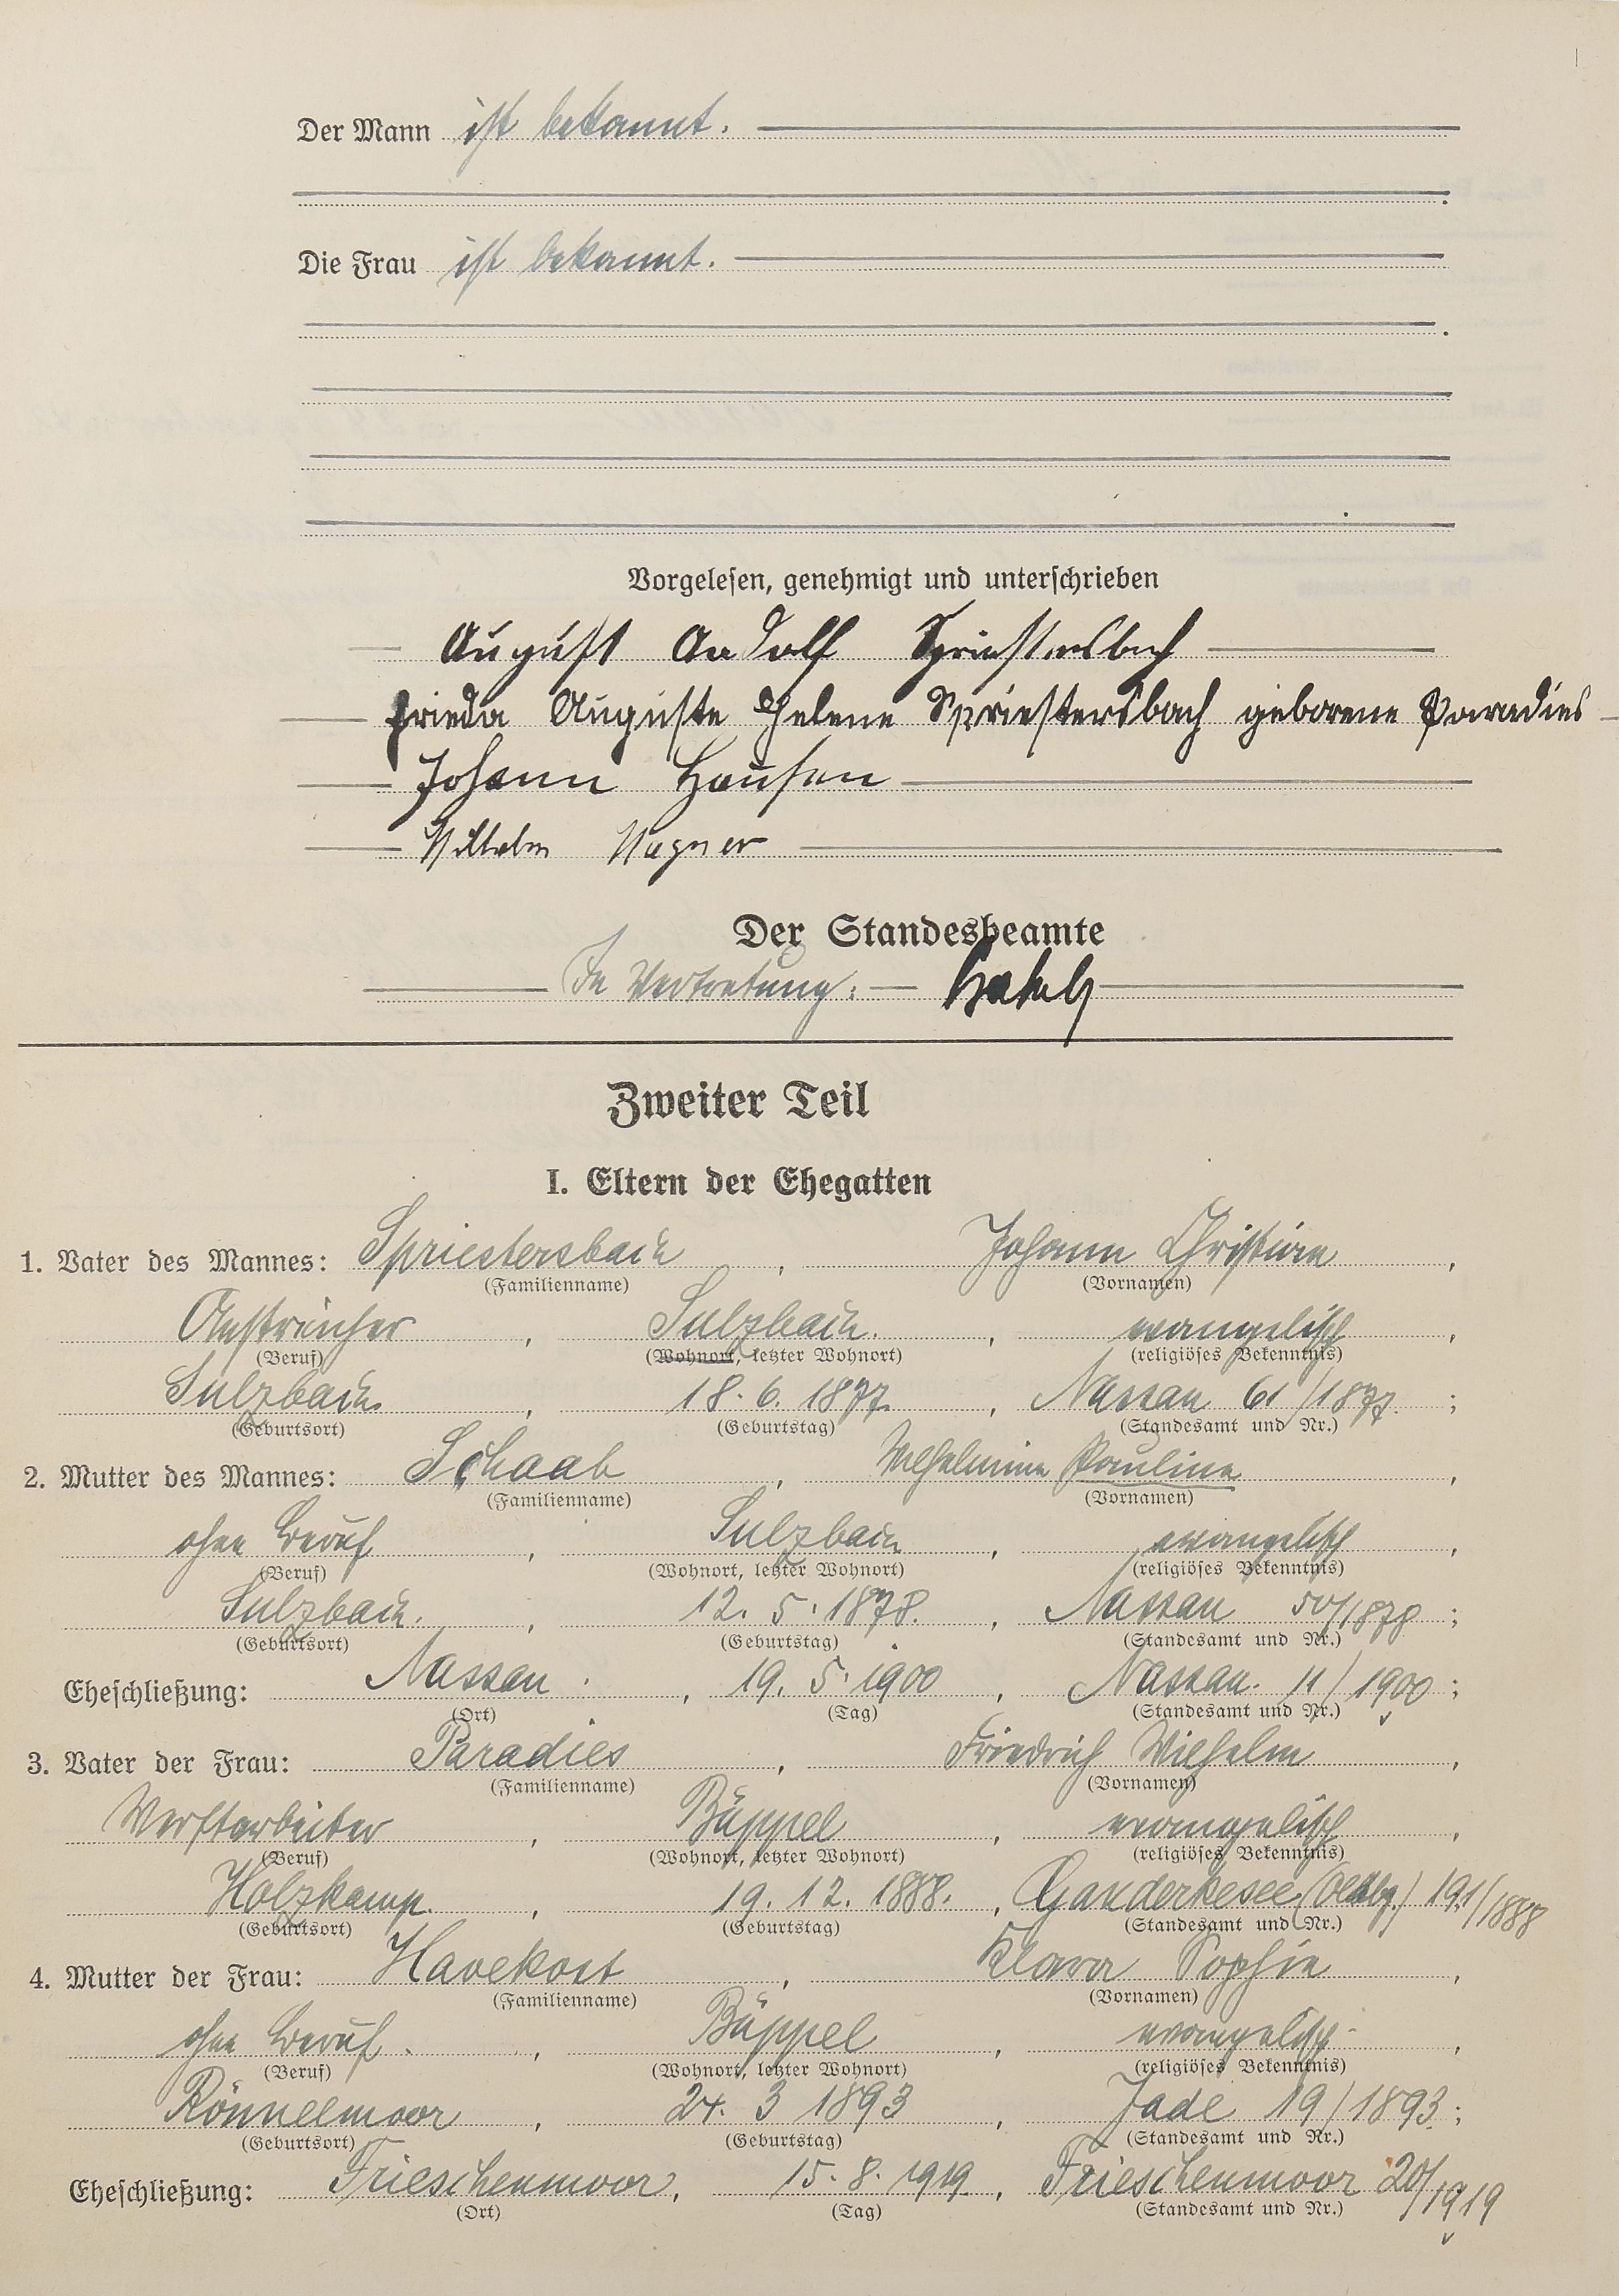 Der Mann ist bekannt.
Die Frau ist bekannt.
Vorgelesen, genehmigt und unterschrieben
August Adolf Spriestersbach
Frieda Auguste Helene Spriestersbach geborene Paradies
Johann Hansen
Wilhelm Wagner
Der Standesbeamte
In Vertretung:
Zweiter Teil
I. Eltern der Ehegatten
1. Vater des Mannes: Spriestersbach, Johann Christian,
(Familienname) (Vornamen)
Anstreicher, Sulzbach, evangelisch,
(Beruf) (Wohnort, letzter Wohnort) (religiöses Bekenntnis)
Sulzbach, 18. 6. 1877, Nassau 61/1877;
(Geburtsort) (Geburtstag) (Standesamt und Nr.)
2. Mutter des Mannes: Schaab, Wilhelmine Pauline,
(Familienname) (Vornamen)
ohne Beruf, Sulzbach, evangelisch,
(Beruf) (Wohnort, letzter Wohnort) (religiöses Bekenntnis)
Sulzbach, 12. 5. 1878, Nassau 50/1878;
(Geburtsort) (Geburtstag) (Standesamt und Nr.)
Eheschließung: Nassau, 19. 5. 1900, Nassau 11/1900;
(Ort) (Tag) (Standesamt und Nr.)
3. Vater der Frau: Paradies, Friedrich Wilhelm,
(Familienname) (Vornamen)
Werftarbeiter, Büppel, evangelisch,
(Beruf) (Wohnort, letzter Wohnort) (religiöses Bekenntnis)
Holzkamp, 19. 12. 1888, Ganderkesee (Oldbg.) 191/1888
(Geburtsort) (Geburtstag) (Standesamt und Nr.)
4. Mutter der Frau: Havekost, Klara Sophie,
(Familienname) (Vornamen)
ohne Beruf, Büppel, evangelisch,
(Beruf) (Wohnort, letzter Wohnort) (religiöses Bekenntnis)
Rönnelmoor, 24. 3 1893, Jade 19/1893;
(Geburtsort) (Geburtstag) (Standesamt und Nr.)
Eheschließung: Frieschenmoor, 15. 8. 1919, Frieschenmoor 20/1919
(Ort) (Tag) (Standesamt und Nr.)